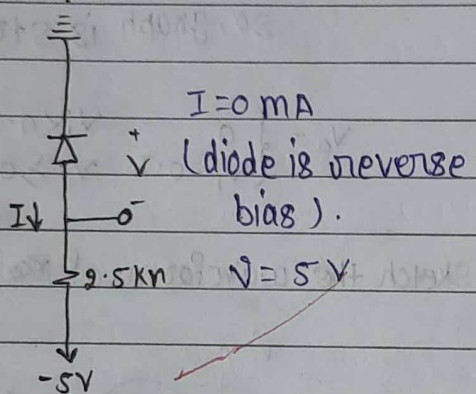 I=0 mA
+
V
(diode is reverse
I↓
-
bias).
2.5kn
V= 5 V
-5V